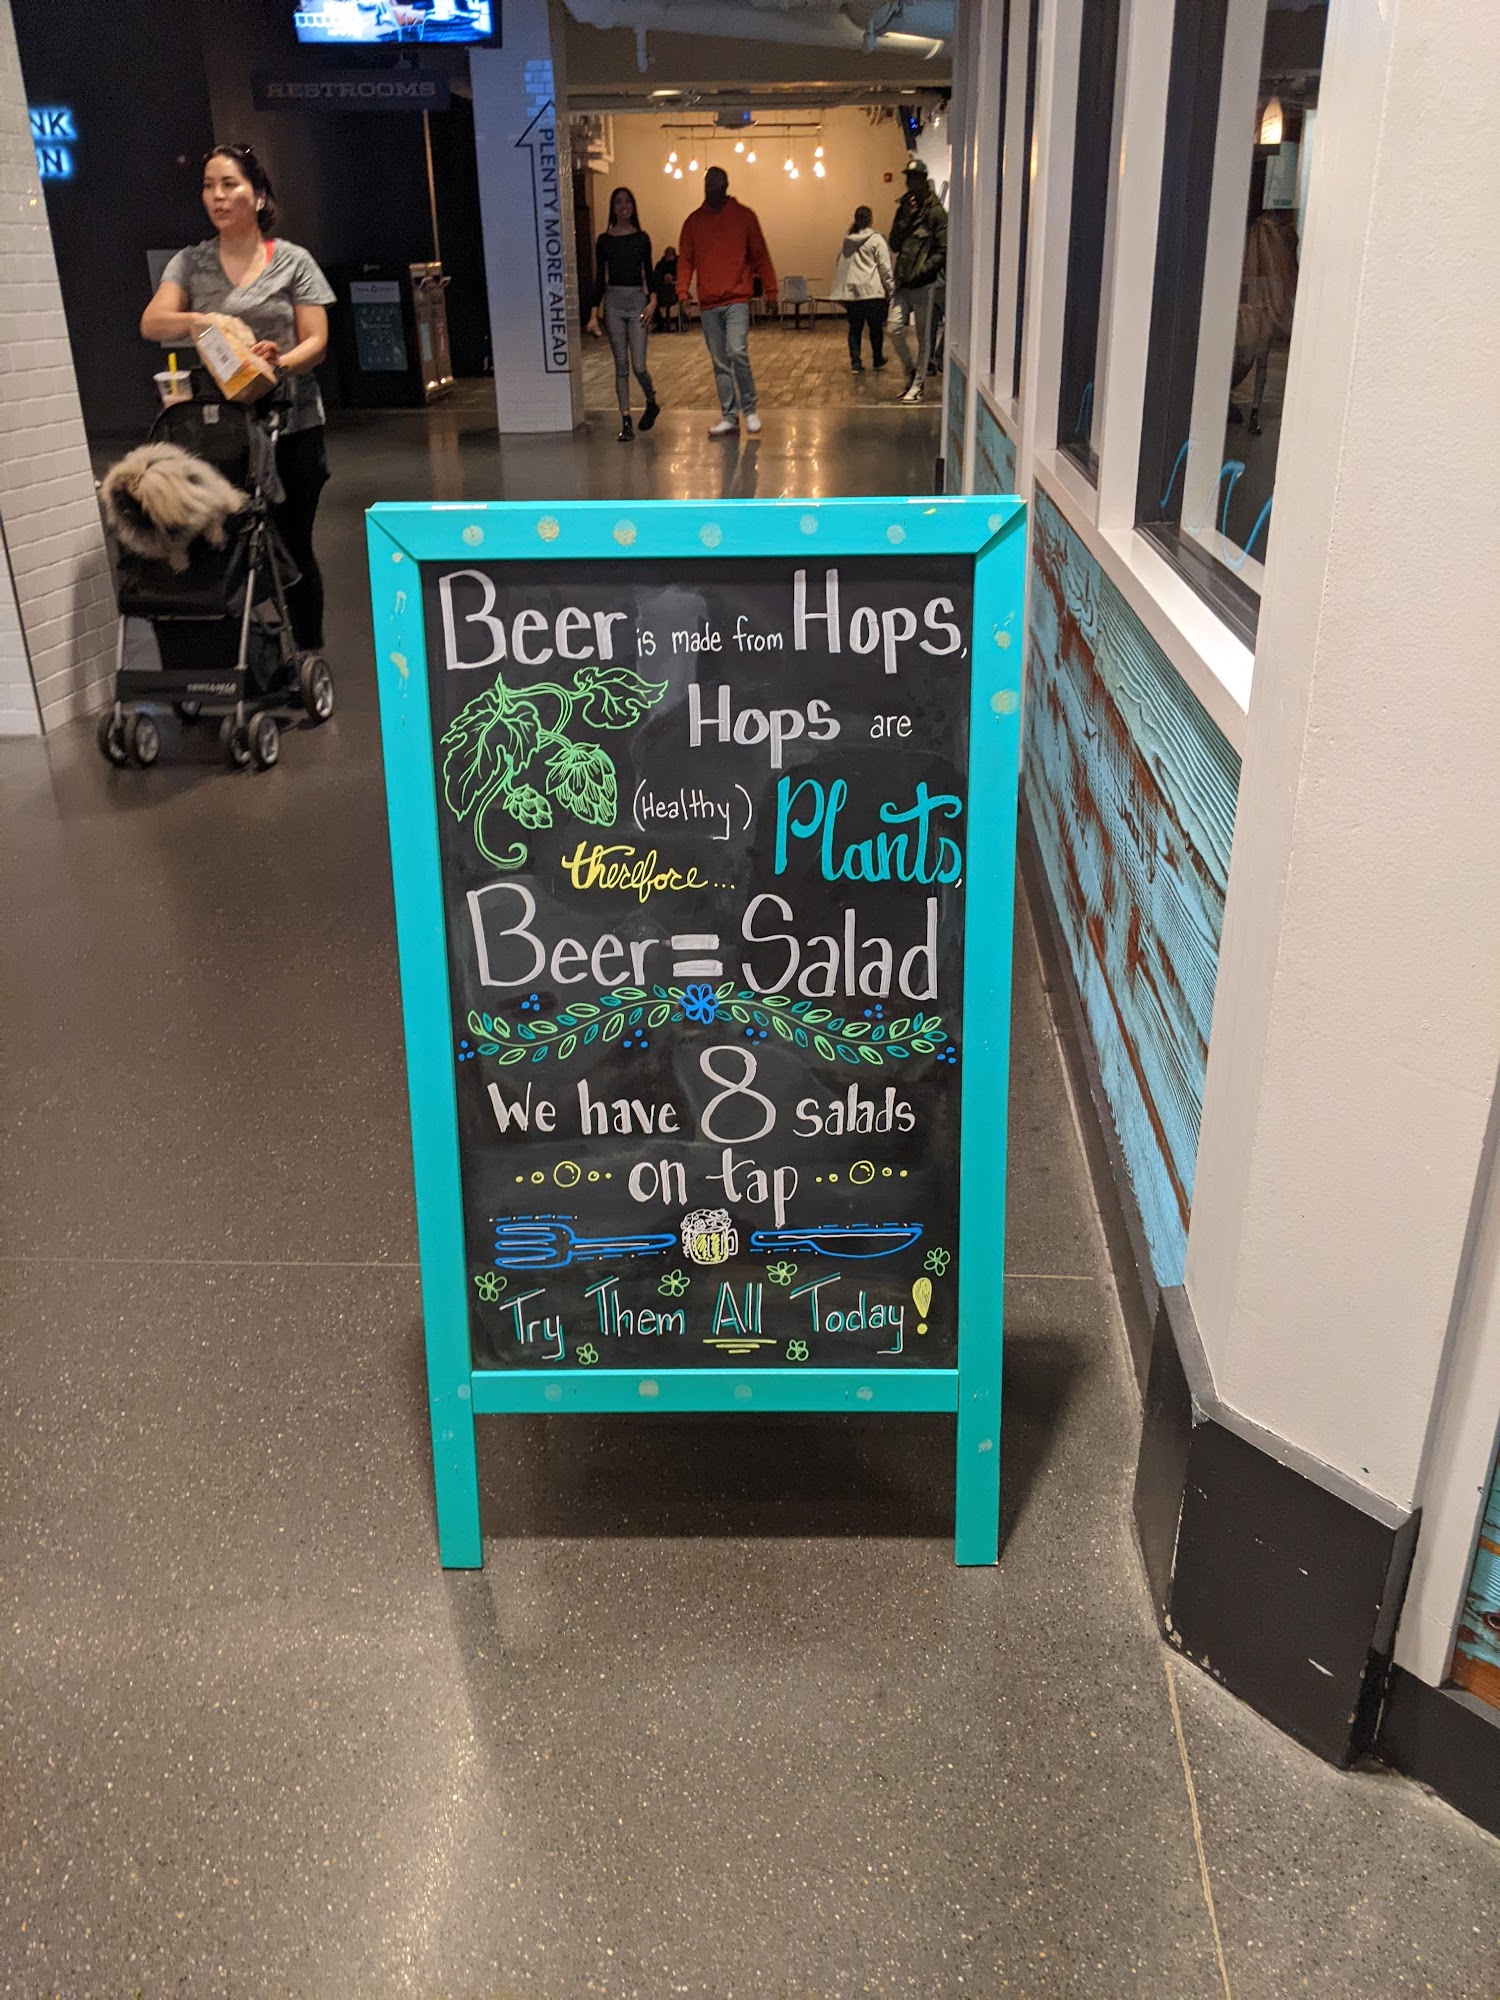 RESTROOMS
NK
ON
PLENTY MORE AHEAD
Beer is made from Hops,
Hops are
(Healthy) Plants,
therefore...
Beer = Salad
We have 8 salads
on tap
Try Them All Today!